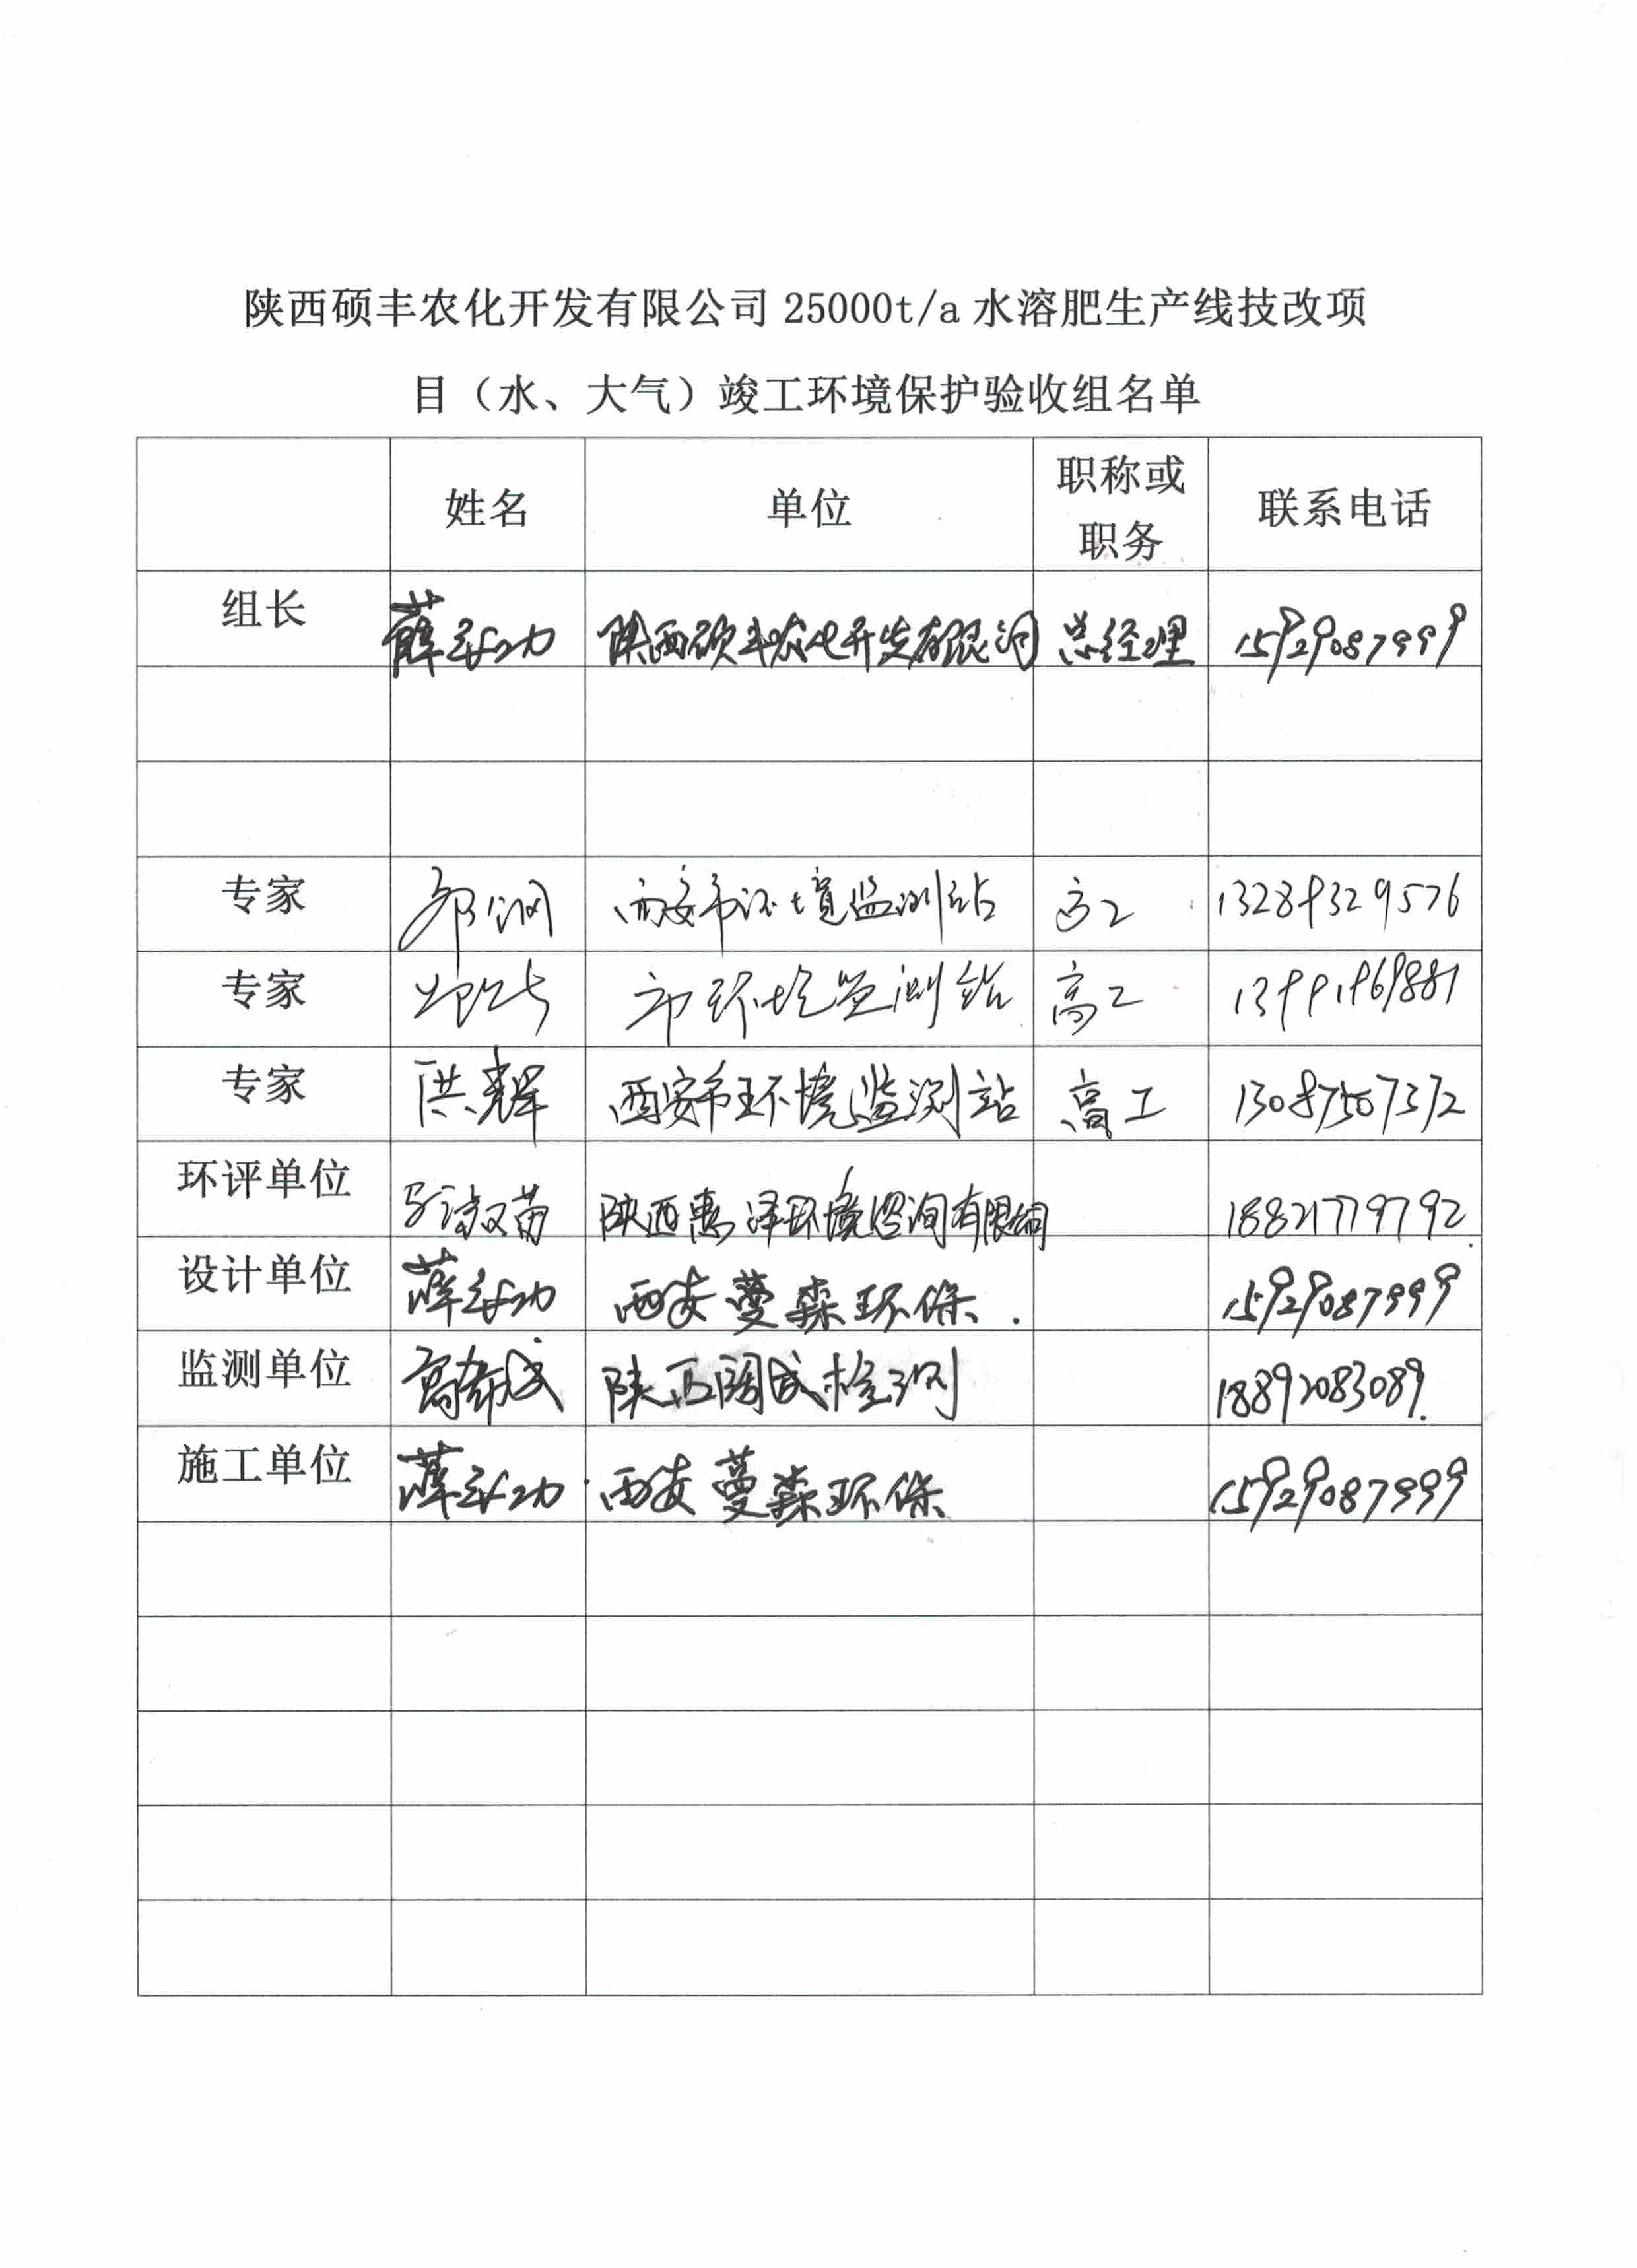 陕西硕丰农化开发有限公司 25000t/a 水溶肥生产线技改项
目（水、大气）竣工环境保护验收组名单
姓名 单位 职称或职务 联系电话
组长 薛 功 陕西硕丰农化开发有限公司 总经理 15929087999
专家 西安市环境监测站 高工 13289329576
专家 市环境监测站 高工 13991969881
专家 洪辉 西安市环境监测站 高工 13087567372
环评单位 陕西惠泽环境咨询有限公司 18821779792
设计单位 薛 功 西安蔓森环保 15929087999
监测单位 陕西阔成检测 18892083089
施工单位 薛 功 西安蔓森环保 15929087999